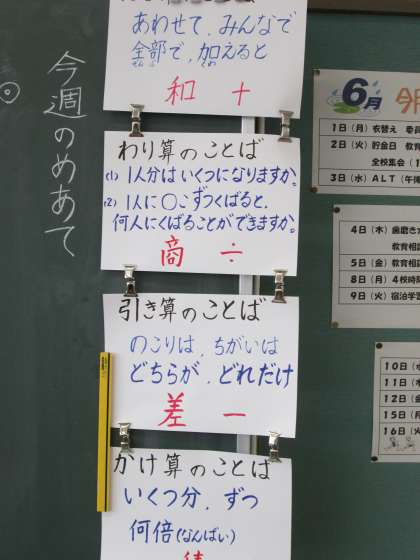 今週のめあて
あわせて、みんなで
全部で、加えると
ぜんぶ くわ
和 +
わり算のことば
(1) 1人分はいくつになりますか。
(2) 1人に○こずつくばると、
何人にくばることができますか。
商 ÷
引き算のことば
のこりは、ちがいは
どちらが、どれだけ
差 −
かけ算のことば
いくつ分、ずつ
何倍(なんばい)
6月
1日(月)衣替え
2日(火)貯金日 教育
全校集会(1
3日(水)ALT(午
4日(木)歯磨き
教育相
5日(金)教育相
8日(月)4校時
9日(火)宿泊学習
10日(水
11日(木
12日(金
15日(月
16日(火